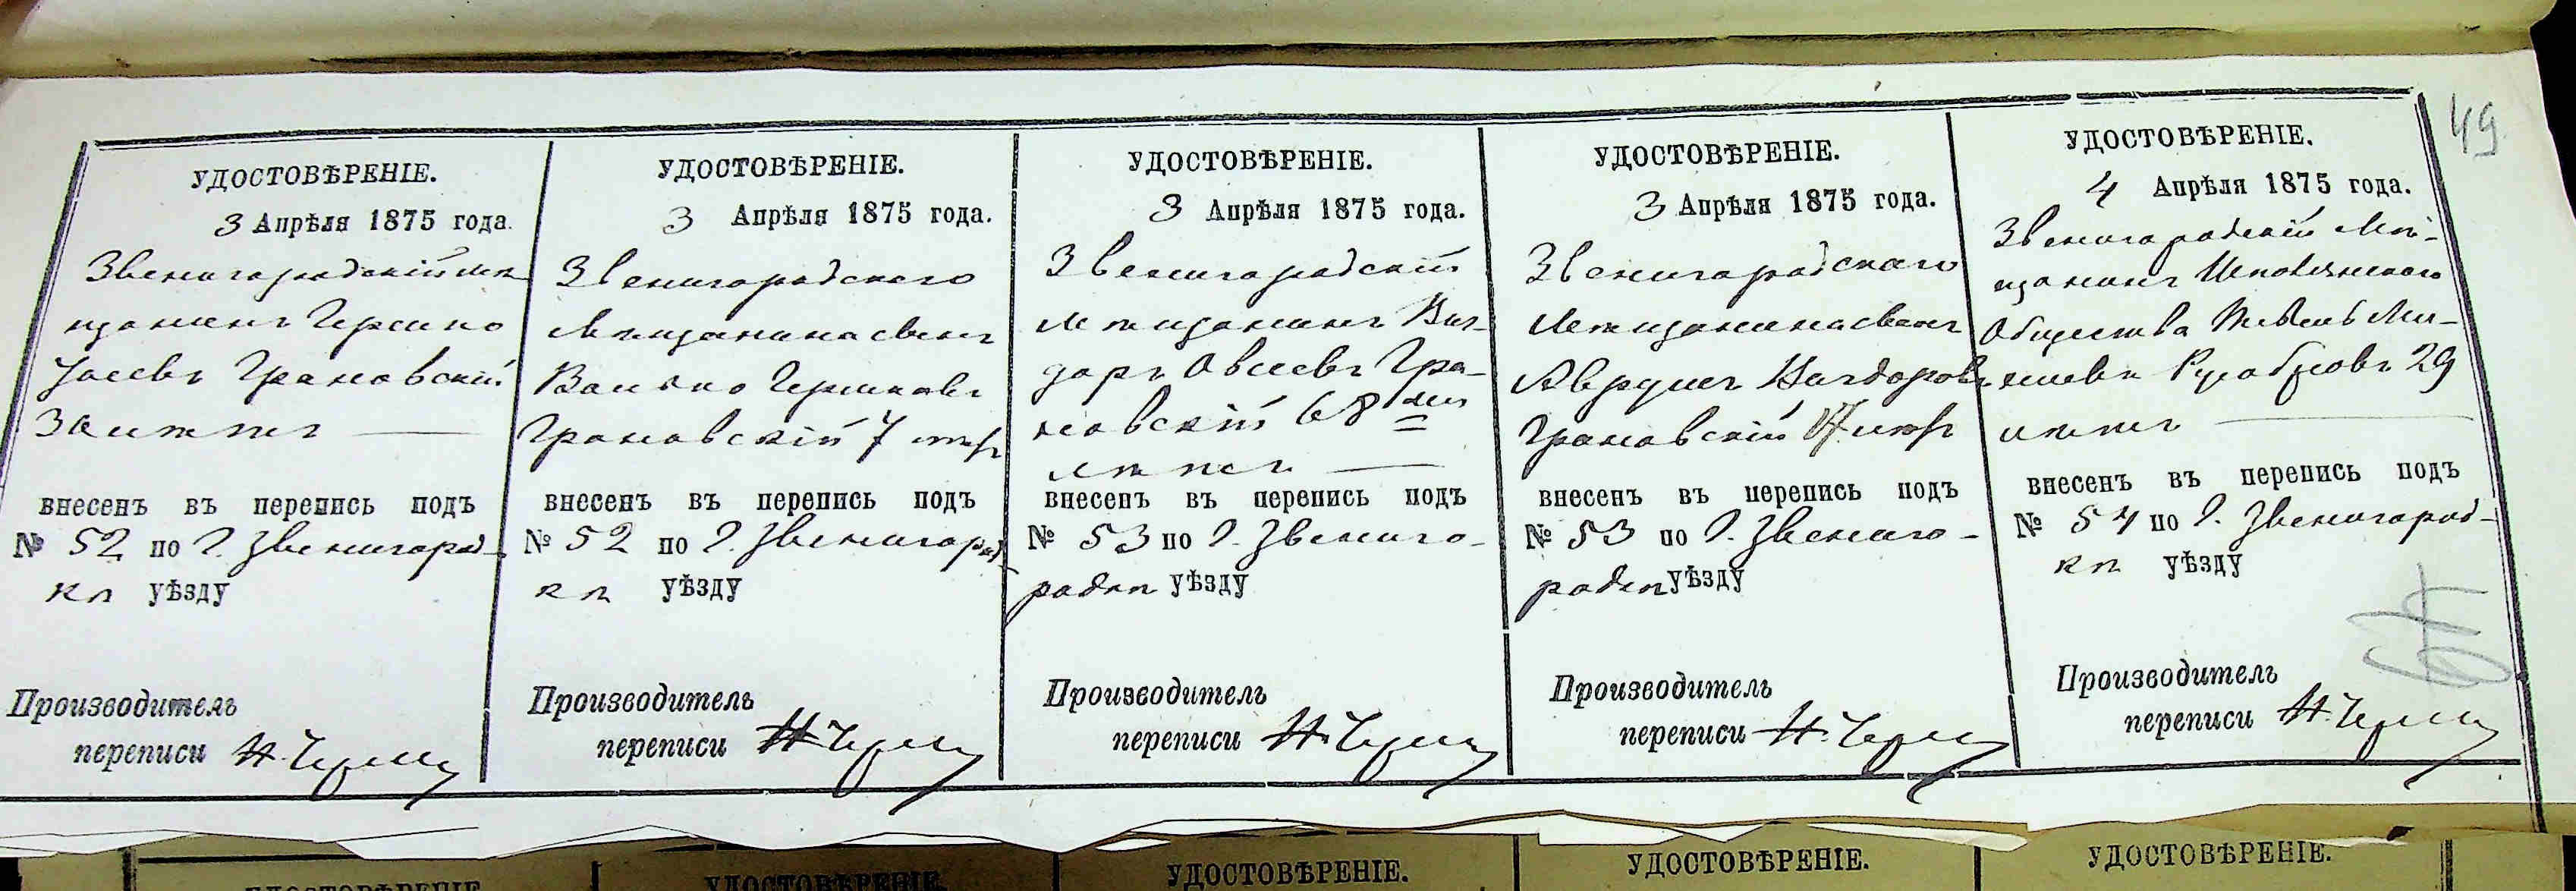 49
УДОСТОВѢРЕНІЕ.
3 Апрѣля 1875 года.
Звенигородскій мѣ
щанинъ Гершко
Іосевъ Грановскій
30 лѣтъ
внесенъ въ перепись подъ
№ 52 по г. Звенигород-
кѣ уѣзду
Производитель
переписи Н.
УДОСТОВѢРЕНІЕ.
3 Апрѣля 1875 года.
Звенигородскаго
Мѣщанина сынъ
Гершковъ
Грановскій 7 лѣтъ
внесенъ въ перепись подъ
№ 52 по г. Звенигород-
кѣ уѣзду
Производитель
переписи Н.
УДОСТОВѢРЕНІЕ.
3 Апрѣля 1875 года.
Звенигородскій
Мѣщанинъ Виг-
доръ Овсеевъ Гра-
новскій 68ми
лѣтъ
внесенъ въ перепись подъ
№ 53 по г. Звениго-
родкѣ уѣзду
Производитель
переписи Н.
УДОСТОВѢРЕНІЕ.
3 Апрѣля 1875 года.
Звенигородскаго
Мѣщанина сынъ
Аврумъ Вигдоровъ
Грановскій лѣтъ
внесенъ въ перепись подъ
№ 53 по г. Звениго-
родкѣ уѣзду
Производитель
переписи Н.
УДОСТОВѢРЕНІЕ.
4 Апрѣля 1875 года.
Звенигородскій Мѣ-
щанинъ Шполянскаго
Общества 29
лѣтъ
внесенъ въ перепись подъ
№ 54 по г. Звенигород-
кѣ уѣзду
Производитель
переписи Н.
УДОСТОВѢРЕНІЕ.
УДОСТОВѢРЕНІЕ.
УДОСТОВѢРЕНІЕ.
УДОСТОВѢРЕНІЕ.
УДОСТОВѢРЕНІЕ.